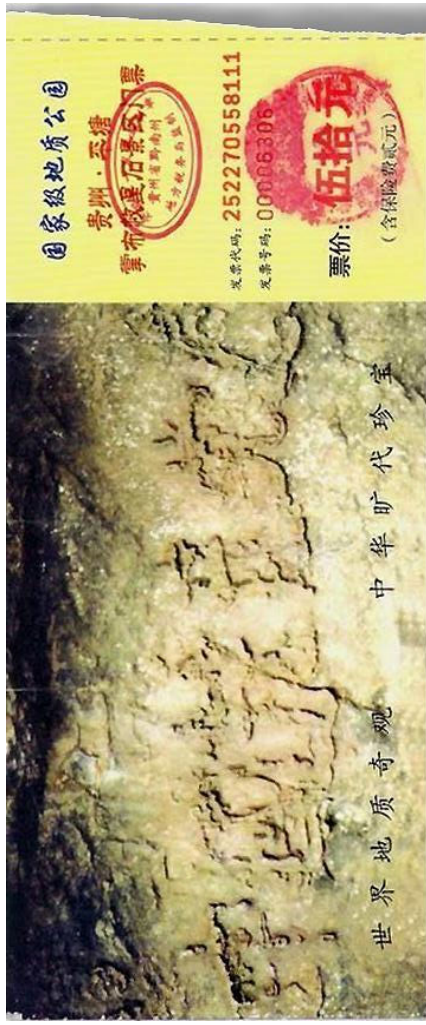 国家级地质公园
贵州·平塘
掌布救星石景区门票
贵州省黔南州
地方税务局监制
发票代码: 252270558111
发票号码: 00006306
票价: 伍拾元
(含保险费贰元)
中國共産党亡
世界地质奇观 中华旷代珍宝